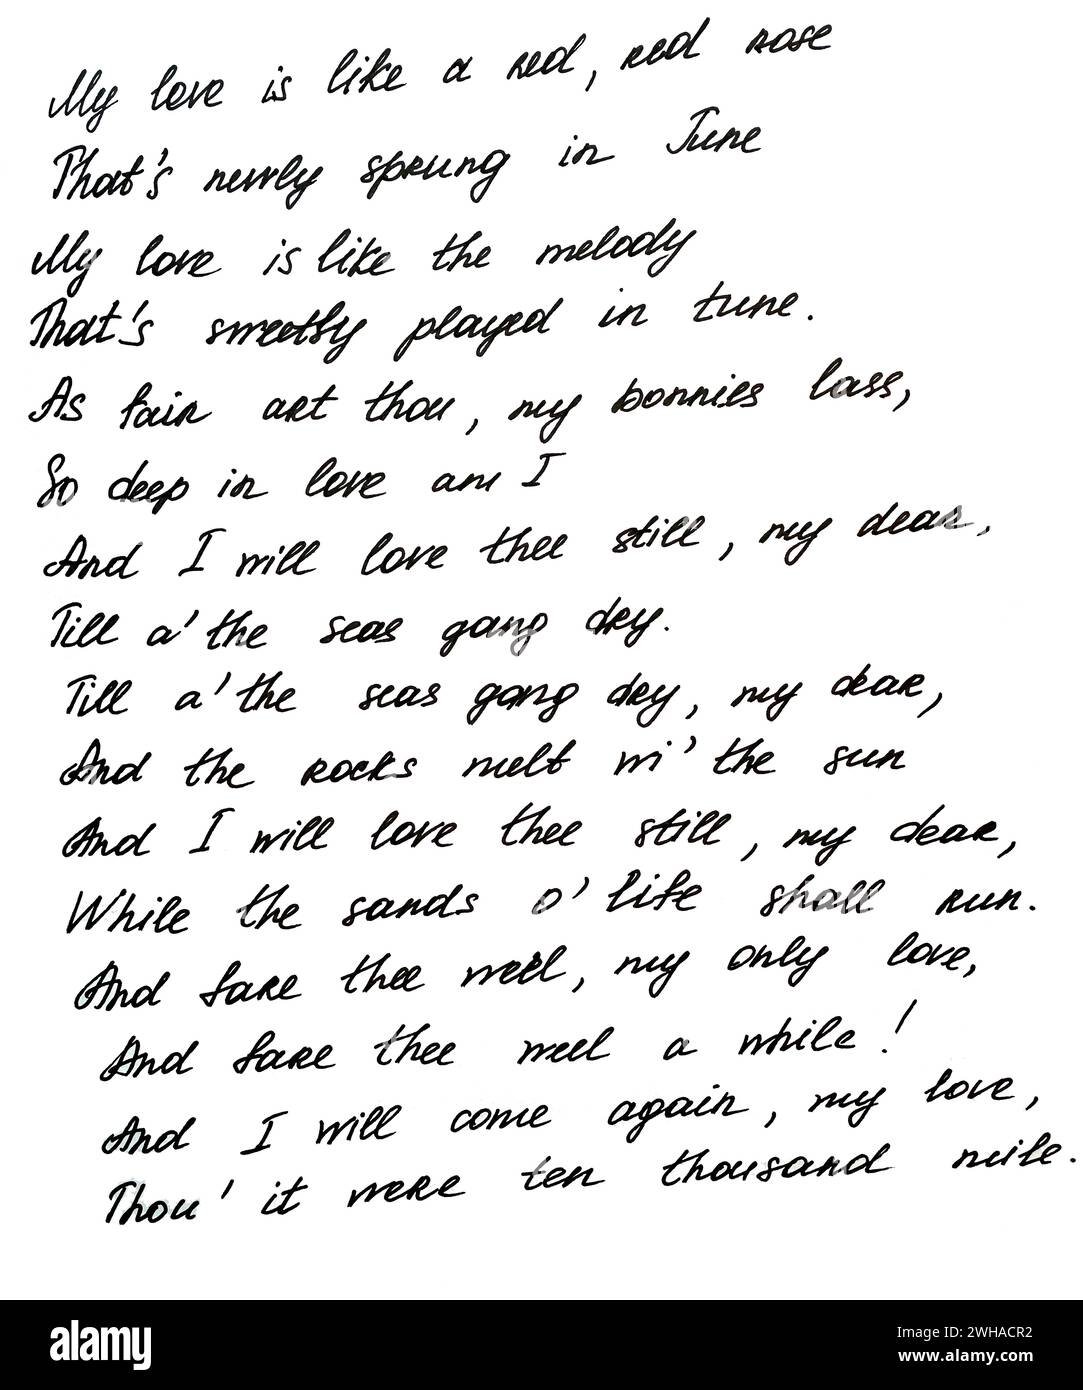 My love is like a red, red rose
That's newly sprung in June
My love is like the melody
That's sweetly played in tune.
As fair art thou, my bonnies lass,
So deep in love am I
And I will love thee still, my dear,
Till a' the seas gang dry.
Till a' the seas gang dry, my dear,
And the rocks melt wi' the sun
And I will love thee still, my dear,
While the sands o' life shall run.
And fare thee weel, my only love,
And fare thee weel a while!
And I will come again, my love,
Thou' it were ten thousand mile.
alamy
Image ID: 2WHACR2
www.alamy.com